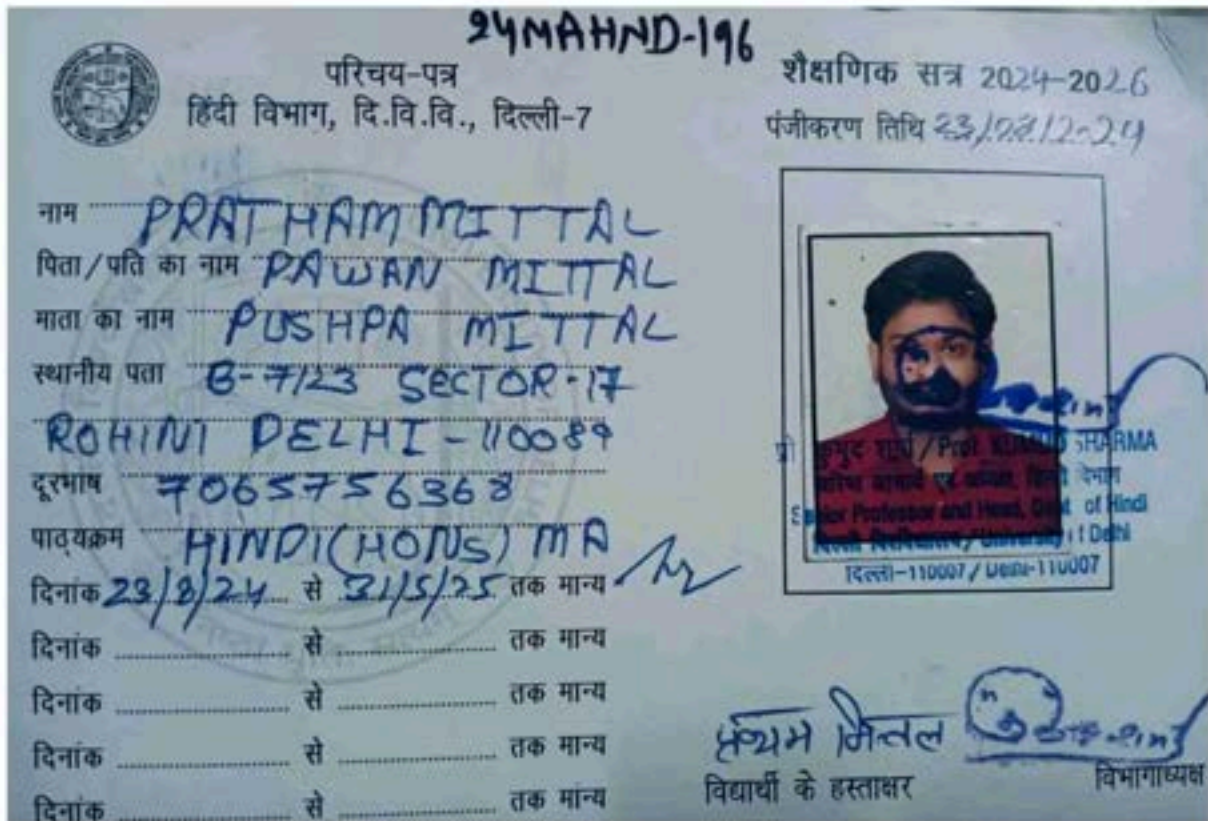 24MAHND-196
परिचय-पत्र
हिंदी विभाग, दि.वि.वि., दिल्ली-7
शैक्षणिक सत्र 2024-2026
पंजीकरण तिथि
नाम PRATHAM MITTAL
पिता/पति का नाम PAWAN MITTAL
माता का नाम PUSHPA MITTAL
स्थानीय पता B-7/23 SECTOR-17
ROHINI DELHI-110089
दूरभाष 7065756368
पाठ्यक्रम HINDI(HONS) MA
दिनांक 23/8/24 से 31/5/25 तक मान्य
दिनांक से तक मान्य
दिनांक से तक मान्य
दिनांक से तक मान्य
दिनांक से तक मान्य
Prof KUMUD SHARMA
Senior Professor and Head, Deptt of Hindi
University of Delhi
दिल्ली-110007 / Delhi-110007
प्रथम मित्तल
विद्यार्थी के हस्ताक्षर
विभागाध्यक्ष